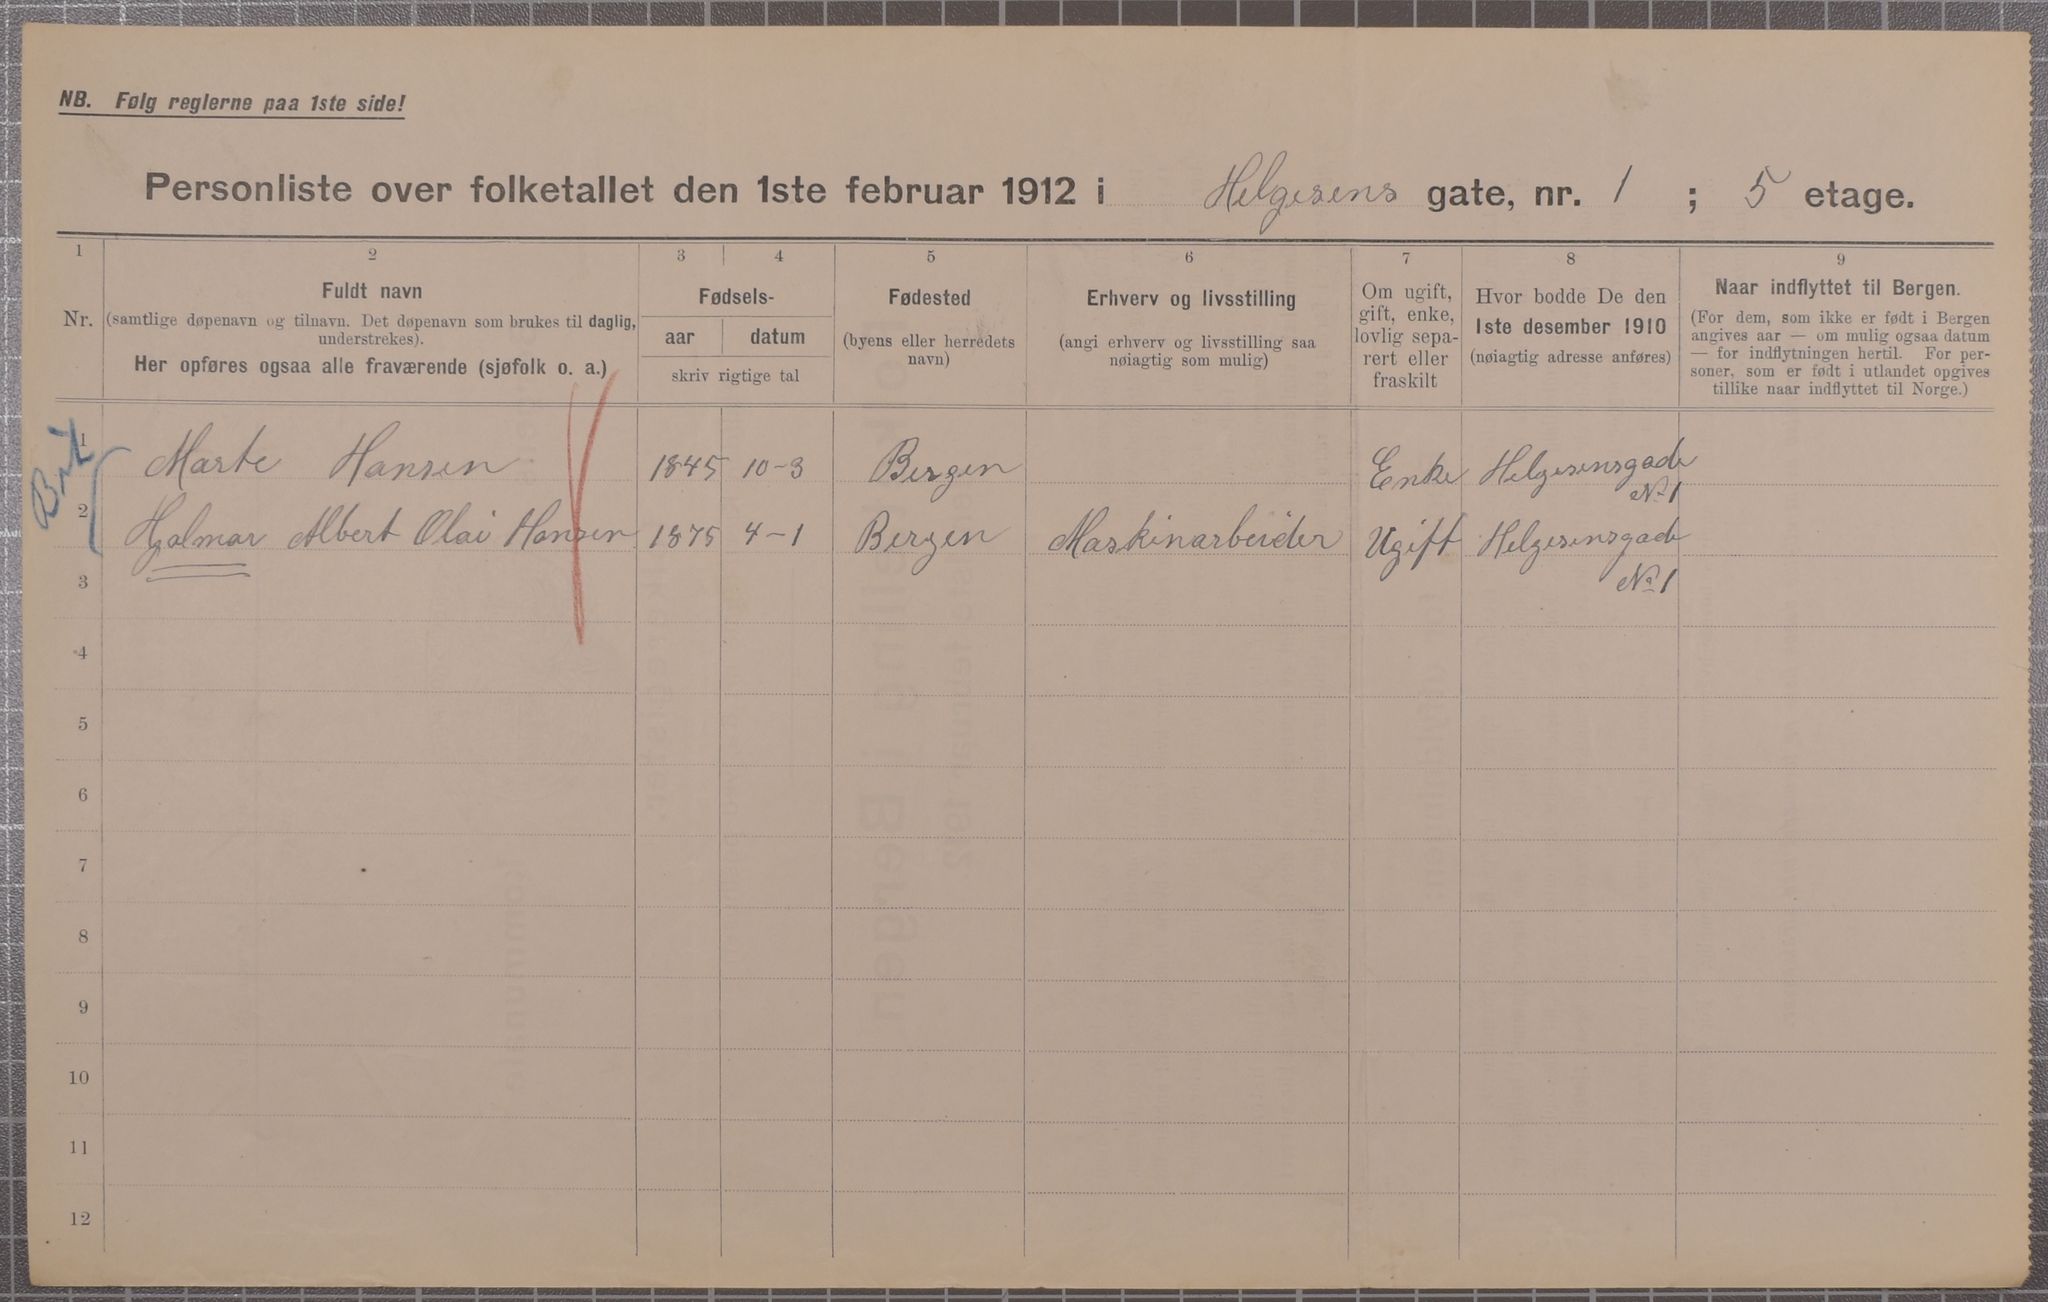 NB. Følg reglerne paa 1ste side!
Personliste over folketallet den 1ste februar 1912 i Helgesens gate, nr. 1 ; 5 etage.
1 2 3 4 5 6 7 8 9
Nr.
Fuldt navn
(samtlige døpenavn og tilnavn. Det døpenavn som brukes til daglig,
understrekes).
Her opføres ogsaa alle fraværende (sjøfolk o. a.)
Fødsels-
aar datum
skriv rigtige tal
Fødested
(byens eller herredets
navn)
Erhverv og livsstilling
(angi erhverv og livsstilling saa
nøiagtig som mulig)
Om ugift,
gift, enke,
lovlig sepa-
rert eller
fraskilt
Hvor bodde De den
1ste desember 1910
(nøiagtig adresse anføres)
Naar indflyttet til Bergen.
(For dem, som ikke er født i Bergen
angives aar — om mulig ogsaa datum
— for indflytningen hertil. For per-
soner, som er født i utlandet opgives
tillike naar indflyttet til Norge.)
1 Marte Hansen 1845 10-3 Bergen Enke Helgesensgade
No 1
2 Hjalmar Albert Olai Hansen 1875 4-1 Bergen Maskinarbeider Ugift Helgesensgade
No 1
3
4
5
6
7
8
9
10
11
12